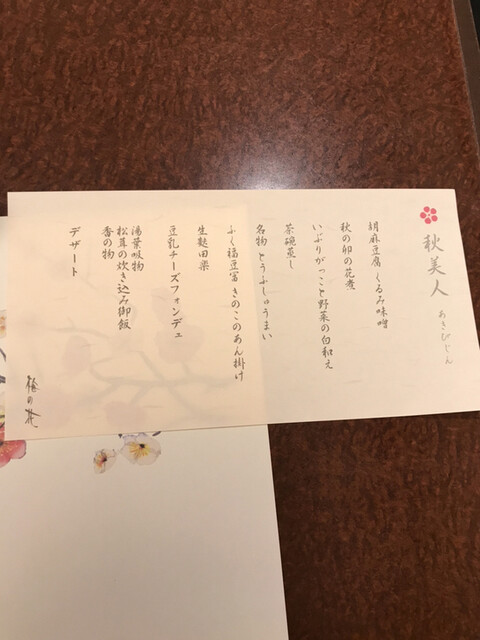 秋美人
あきびじん
胡麻豆腐 くるみ味噌
秋の卯の花煮
いぶりがっこと野菜の白和え
茶碗蒸し
名物 とうふしゅうまい
ふく福豆冨 きのこのあん掛け
生麩田楽
豆乳チーズフォンデュ
湯葉吸物
松茸の炊き込み御飯
香の物
デザート
梅の花